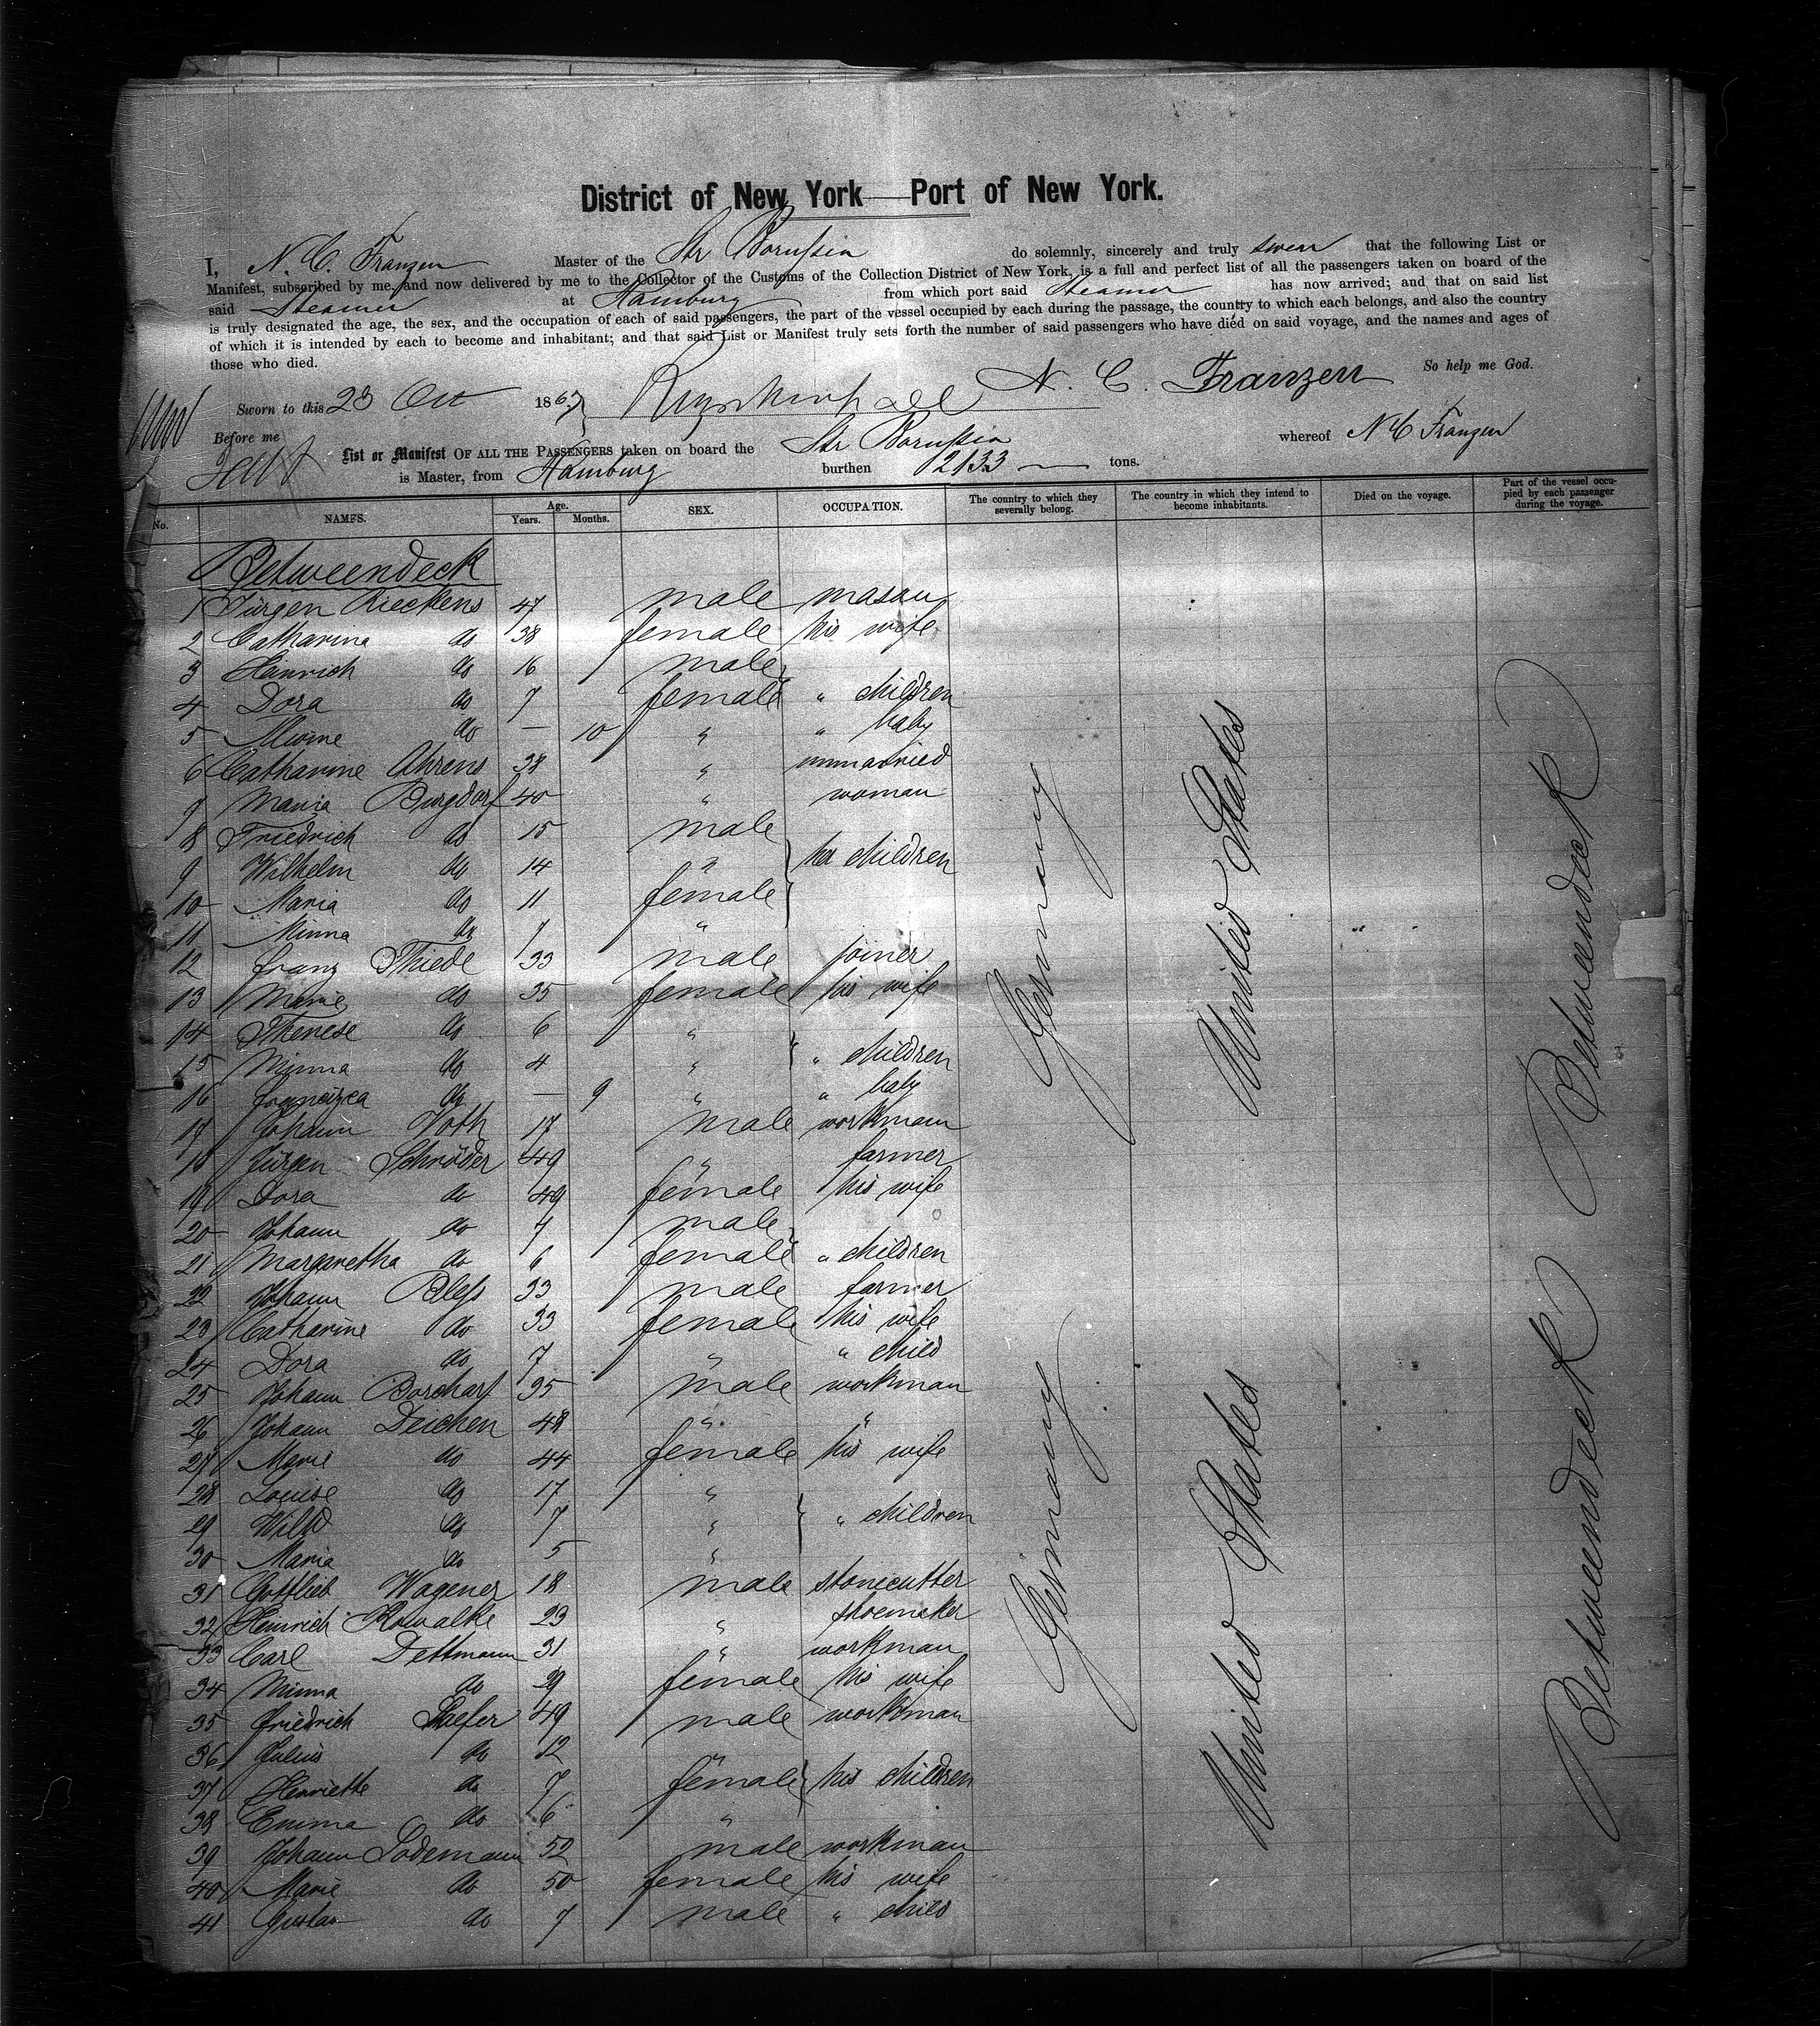 District of New York Port of New York.
I, N. C. Franzen Master of the Str Borußia do solemnly, sincerely and truly swear that the following List or
Manifest, subscribed by me, and now delivered by me to the Collector of the Customs of the Collection District of New York, is a full and perfect list of all the passengers taken on board of the
said Steamer at Hamburg from which port said Steamer has now arrived; and that on said list
is truly designated the age, the sex, and the occupation of each of said passengers, the part of the vessel occupied by each during the passage, the country to which each belongs, and also the country
of which it is intended by each to become and inhabitant; and that said List or Manifest truly sets forth the number of said passengers who have died on said voyage, and the names and ages of
those who died.
So help me God.
N. C. Franzen
Sworn to this 23 Oct 1867
Before me
List or Manifest OF ALL THE PASSENGERS taken on board the Str Borußia whereof N C Franzen
is Master, from Hamburg burthen 2133 tons.
No. NAMES. Age. Years. Months. SEX. OCCUPATION. The country to which they severally belong. The country in which they intend to become inhabitants. Died on the voyage. Part of the vessel occupied by each passenger during the voyage.
Betweendeck
1 Jürgen Rieckens 47 male mason
2 Catharina do 38 female his wife
3 Heinrich do 16 male
4 Dora do 7 female " children
5 do — 10 " " baby
6 Catharine Ahrens 38 " unmarried
7 Maria Burgdorf 40 " woman
8 Friedrich do 15 male
9 Wilhelm do 14 " her children
10 Maria do 11 female
11 Minna do 7 "
12 Franz Thiede 33 male joiner
13 Marie do 35 female his wife
14 Therese do 6 "
15 Minna do 4 " " children
16 do — 9 " " baby
17 Johann Voth 17 male workman
18 Jürgen Schröder 49 " farmer
19 Dora do 49 female his wife
20 Johann do 7 male
21 Margaretha do 6 female " children
22 Johann Bleß 33 male farmer
23 Catharine do 33 female his wife
24 Dora do 7 " " child
25 Johann Borchart 35 male workman
26 Johann Deichen 48 " "
27 Marie do 44 female his wife
28 Louise do 17 "
29 do 7 " " children
30 Maria do 5 "
31 Gottlieb Wagener 18 male stonecutter
32 Heinrich Kowalke 23 " shoemaker
33 Carl Dettmann 31 " workman
34 Minna do 29 female his wife
35 Friedrich 49 male workman
36 Julius do 12 "
37 Henriette do 7 female his children
38 Emma do 6 "
39 Johann Lodemann 52 male workman
40 Marie do 50 female his wife
41 Gustav do 7 male " child
Germany
United States
Betweendeck
Germany
United States
Betweendeck